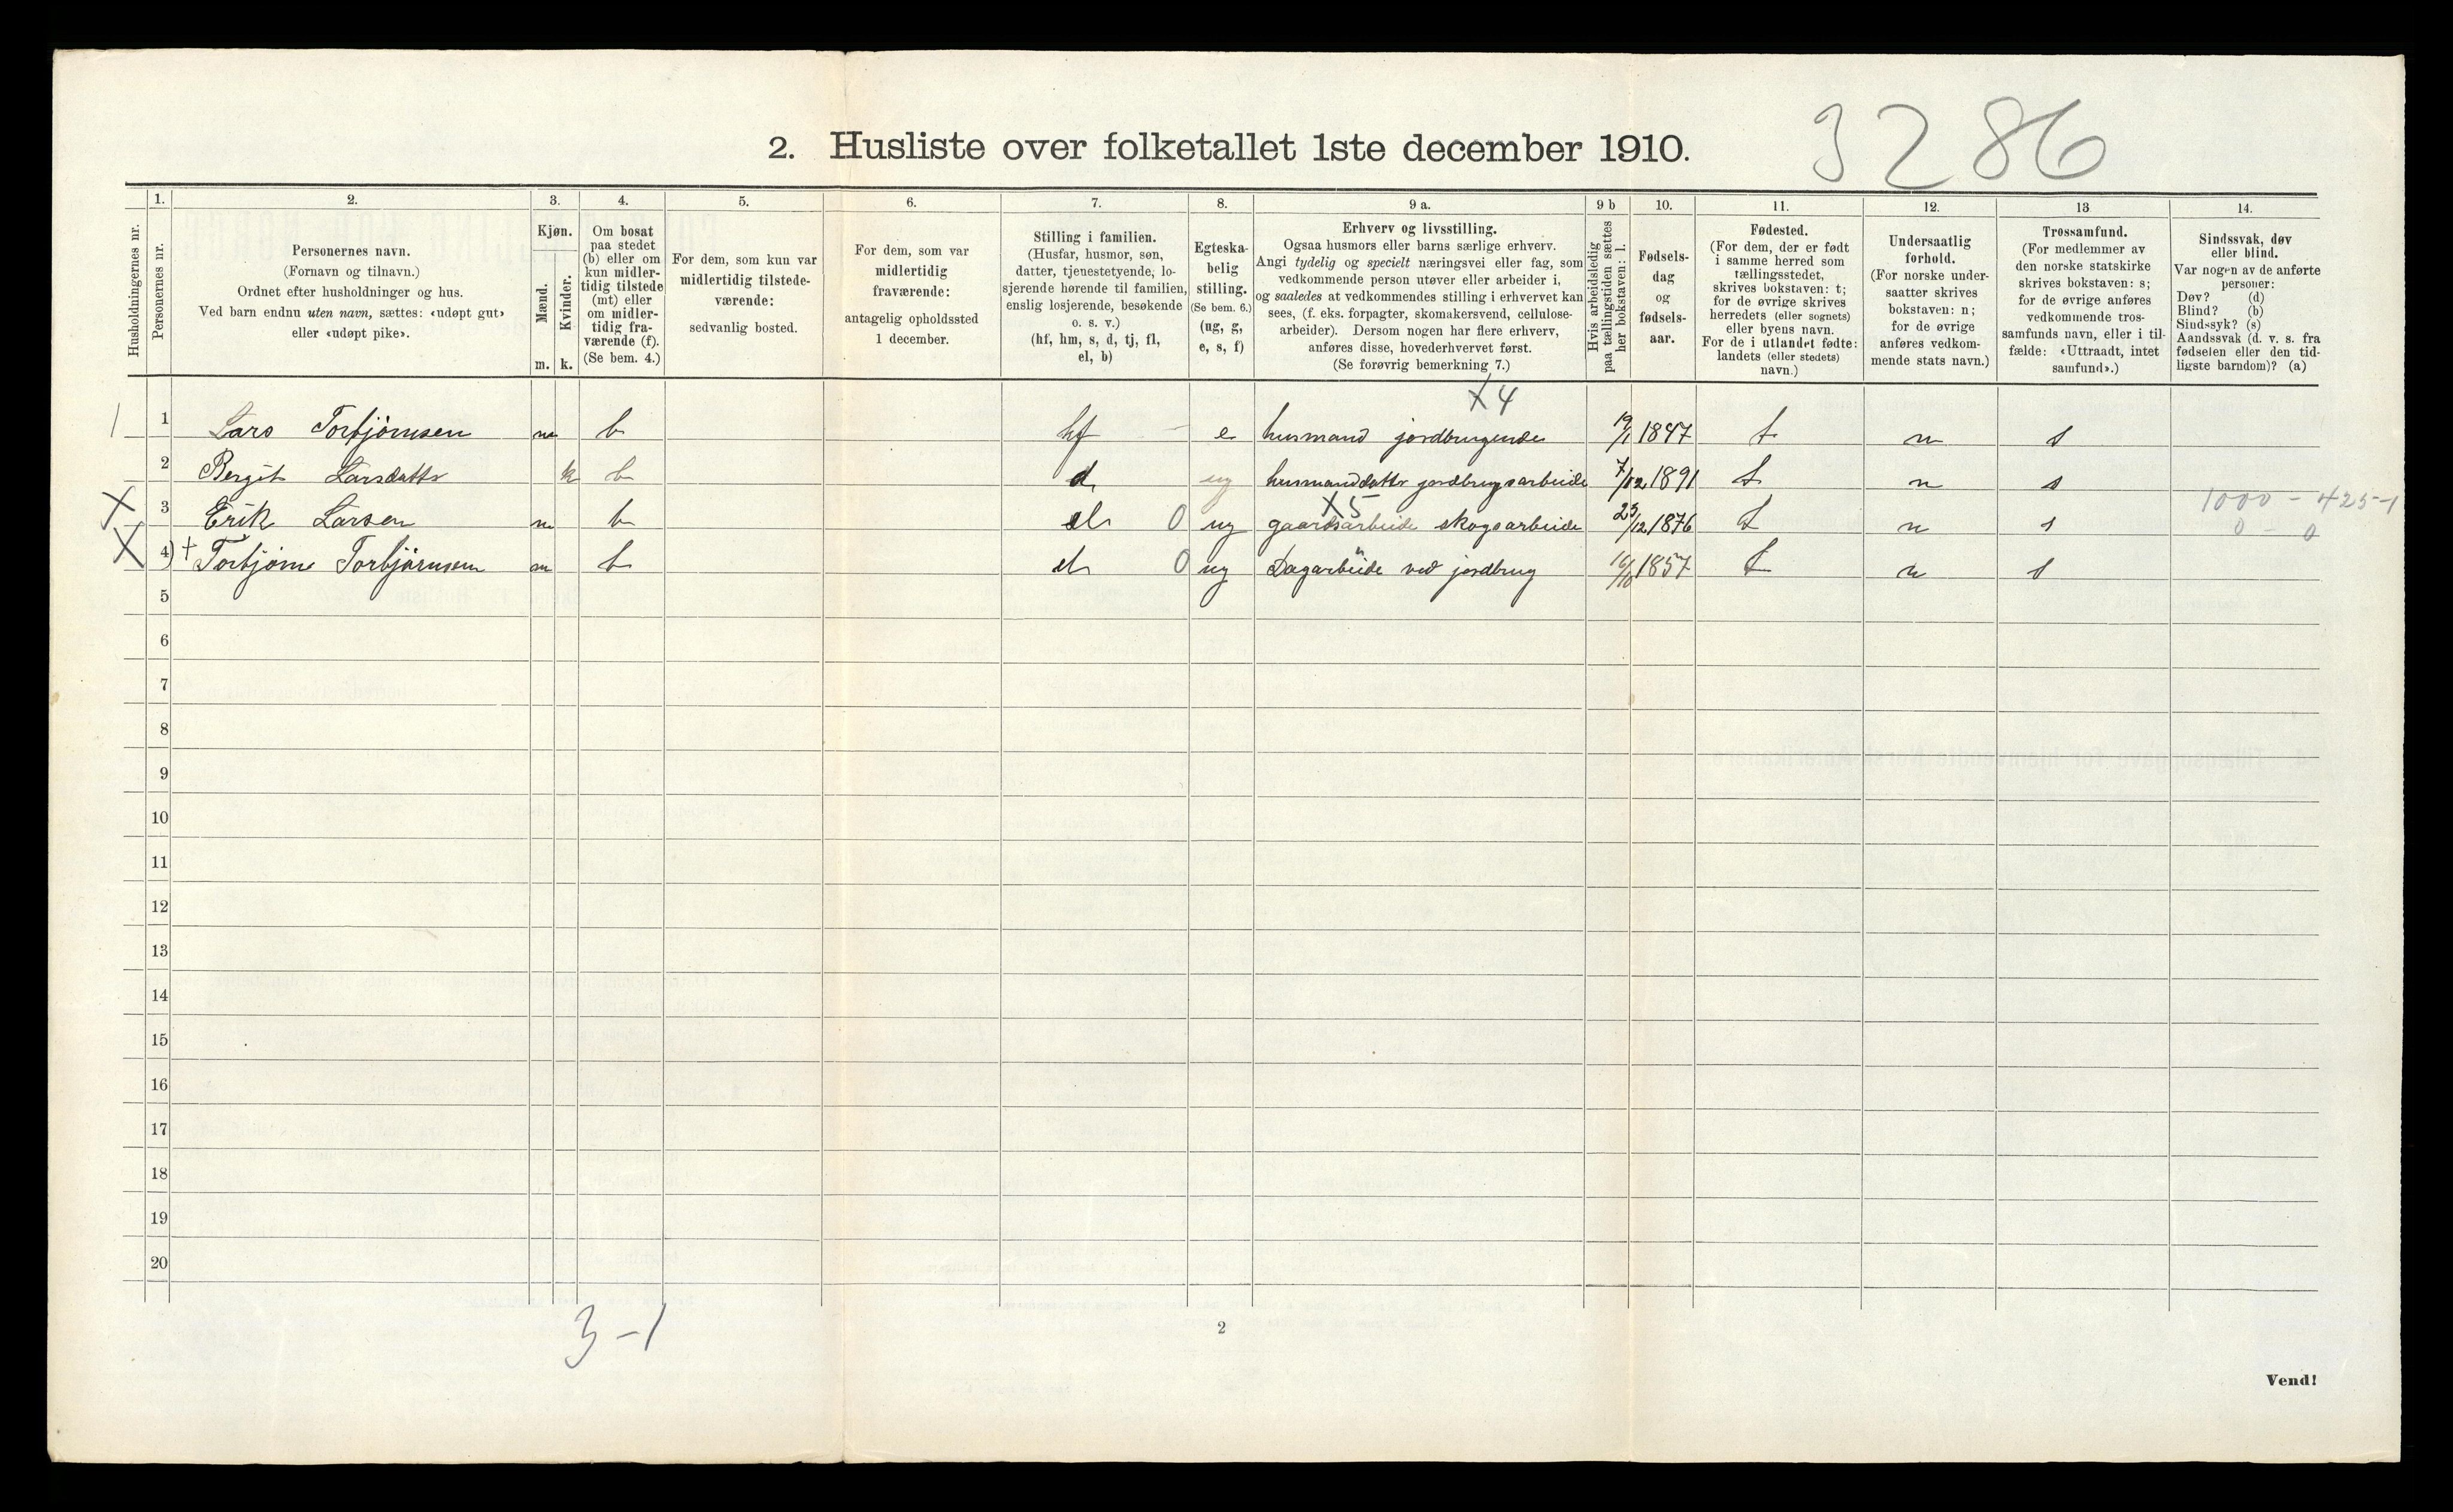 2. Husliste over folketallet 1ste december 1910.
3286
Husholdningernes nr.
1.
Personernes nr.
2.
Personernes navn.
(Fornavn og tilnavn.)
Ordnet efter husholdninger og hus.
Ved barn endnu uten navn, sættes: «udøpt gut»
eller «udøpt pike».
3.
Kjøn.
Mænd.
m.
Kvinder.
k.
4.
Om bosat
paa stedet
(b) eller om
kun midler-
tidig tilstede
(mt) eller
om midler-
tidig fra-
værende (f).
(Se bem. 4.)
5.
For dem, som kun var
midlertidig tilstede-
værende:
sedvanlig bosted.
6.
For dem, som var
midlertidig
fraværende:
antagelig opholdssted
1 december.
7.
Stilling i familien.
(Husfar, husmor, søn,
datter, tjenestetyende, lo-
sjerende hørende til familien,
enslig losjerende, besøkende
o. s. v.)
(hf, hm, s, d, tj, fl,
el, b)
8.
Egteska-
belig
stilling.
(Se bem. 6.)
(ug, g,
e, s, f)
9 a.
Erhverv og livsstilling.
Ogsaa husmors eller barns særlige erhverv.
Angi tydelig og specielt næringsvei eller fag, som
vedkommende person utøver eller arbeider i,
og saaledes at vedkommendes stilling i erhvervet kan
sees, (f. eks. forpagter, skomakersvend, cellulose-
arbeider). Dersom nogen har flere erhverv,
anføres disse, hovederhvervet først.
(Se forøvrig bemerkning 7.)
9 b
Hvis arbeidsledig
paa tællingstiden sættes
her bokstaven: l.
10.
Fødsels-
dag
og
fødsels-
aar.
11.
Fødested.
(For dem, der er født
i samme herred som
tællingsstedet,
skrives bokstaven: t;
for de øvrige skrives
herredets (eller sognets)
eller byens navn.
For de i utlandet fødte:
landets (eller stedets)
navn.)
12.
Undersaatlig
forhold.
(For norske under-
saatter skrives
bokstaven: n;
for de øvrige
anføres vedkom-
mende stats navn.)
13
Trossamfund.
(For medlemmer av
den norske statskirke
skrives bokstaven: s;
for de øvrige anføres
vedkommende tros-
samfunds navn, eller i til-
fælde: «Uttraadt, intet
samfund».)
14.
Sindssvak, døv
eller blind.
Var nogen av de anførte
personer:
Døv? (d)
Blind? (b)
Sindssyk? (s)
Aandssvak (d. v. s. fra
fødselen eller den tid-
ligste barndom)? (a)
X4
1 1 Lars Torbjørnsen m b hf e husmand jordbrugende 19/1 1847 t n s
2 Bergit Larsdattr k b d ug husmanddattr jordbrugsarbeide 7/12 1891 t n s
X 3 Erik Larsen m b el 0 ug gaardsarbeide skogsarbeide 23/12 1876 t n s
X5
1000 - 425-1
0 - 0
X 4) + Torbjørn Torbjørnsen m b el 0 ug Dagarbeide ved jordbrug 16/10 1857 t n s
5
6
7
8
9
10
11
12
13
14
15
16
17
18
19
20
3-1
2
Vend!